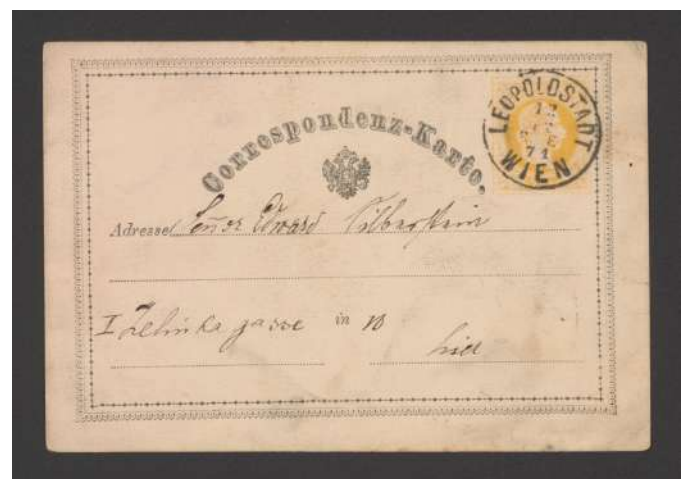 Correspondenz-Karte.
LEOPOLDSTADT
WIEN
71
Adresse Señor Edward Silberstein
I Zelinkagasse in 10
hier